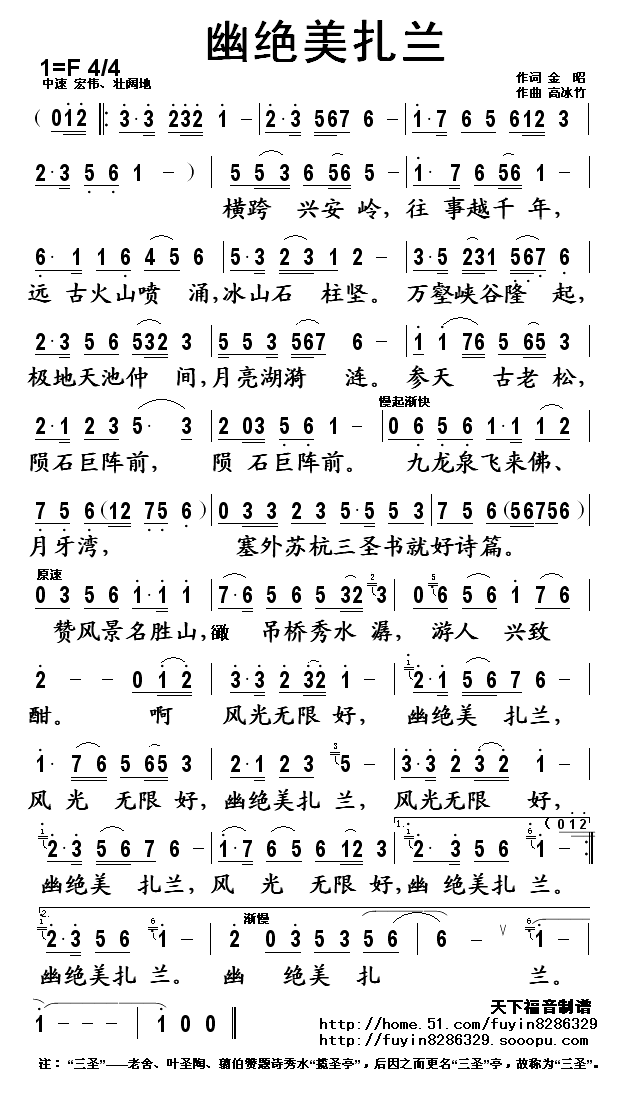 幽绝美扎兰
1=F 4/4
中速 宏伟、壮阔地
作词 金 昭
作曲 高冰竹
( 0 1 2 ‖: 3·3 2 3 2 1 - | 2·3 5 6 7 6 - | 1·7 6 5 6 1 2 3 |
2·3 5 6 1 - ) | 5 5 3 6 5 6 5 - | 1·7 6 5 6 1 - |
横跨 兴安 岭, 往 事越千 年,
6· 1 1 6 4 5 6 | 5·3 2 3 1 2 - | 3·5 2 3 1 5 6 7 6 |
远 古火山喷 涌,冰山石 柱坚。 万壑峡谷隆 起,
2·3 5 6 5 3 2 3 | 5 5 3 5 6 7 6 - | 1 1 7 6 5 6 5 3 |
极地天池仲 间,月亮湖漪 涟。 参天 古老 松,
慢起渐快
2·1 2 3 5· 3 | 2 0 3 5 6 1 - | 0 6 5 6 1·1 1 2 |
陨石巨阵前, 陨 石巨阵前。 九龙泉飞来佛、
7 5 6 ( 1 2 7 5 6 ) | 0 3 3 2 3 5·5 5 3 | 7 5 6 ( 5 6 7 5 6 ) |
月牙湾, 塞外苏杭三圣书就好诗篇。
原速
0 3 5 6 1·1 1 | 7·6 5 6 5 3 2 2 3 | 0 5 6 5 6 1 7 6 |
赞风景名胜山, 吊桥秀水 潺, 游人 兴致
2 - - 0 1 2 | 3·3 2 3 2 1 - | 1 2·1 5 6 7 6 - |
酣。 啊 风光无限 好, 幽绝美 扎兰,
1· 7 6 5 6 5 3 | 2·1 2 3 3 5 - | 3·3 2 3 2 1 - |
风 光 无限 好,幽绝美扎 兰, 风光无限 好,
1. ( 0 1 2
1 2·3 5 6 7 6 - | 1·7 6 5 6 1 2 3 | 1 2·3 5 6 6 1 - :‖
幽绝美 扎兰, 风 光 无限 好,幽 绝美扎 兰。
2. 渐慢
1 2·3 5 6 6 1 - | 2 0 3 5 3 5 6 | 6 - ∨ 6 1 - |
幽绝美扎 兰。 幽 绝美 扎 兰。
1 - - - | 1 0 0 ‖
天下福音制谱
http://home.51.com/fuyin8286329
http://fuyin8286329.sooopu.com
注：“三圣”——老舍、叶圣陶、翦伯赞题诗秀水“揽圣亭”，后因之而更名“三圣”亭，故称为“三圣”。